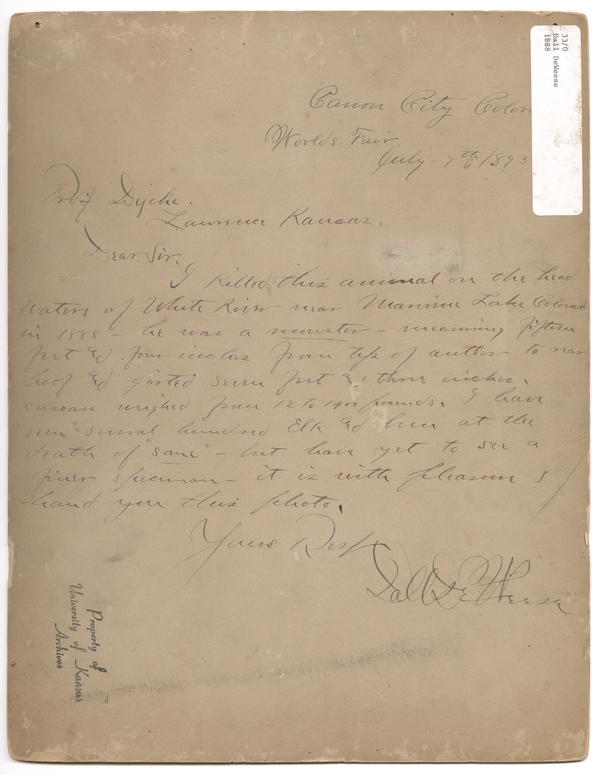 33/0
Dall DeWeese
1888
Canon City Color
Worlds Fair
July - 7th 1893
Prof Dyche.
Lawrence Kansas.
Dear Sir,
I killed this animal on the head
waters of White River near Marvine Lake Colorad
in 1888 - he was a monster - measuring fifteen
feet &d four inches from tip of antler to rear
hoof &d girted seven feet &d three inches.
carcass weighed from 12 to 1400 pounds. I have
seen several hundred Elk &d been at the
death of "some" - but have yet to see a
finer specimen - it is with pleasure I
hand you this photo.
Yours Resp
Dall DeWeese
Property of
University of Kansas
Archives